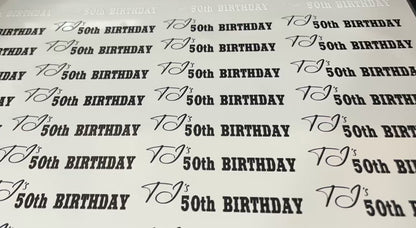 50th BIRTHDAY TJ's 50th BIRTHDAY TJ's 50th BIRTHDAY
BIRTHDAY TJ's 50th BIRTHDAY TJ's 50th BIRTHDAY TJ's 50th BIRTHDAY
BIRTHDAY TJ's 50th BIRTHDAY TJ's 50th BIRTHDAY TJ's 50th BIRTHDAY
TJ's 50th BIRTHDAY TJ's 50th BIRTHDAY TJ's 50th BIRTHDAY
TJ's 50th BIRTHDAY TJ's 50th BIRTHDAY TJ's 50th BIRTHDAY
TJ's 50th BIRTHDAY TJ's 50th BIRTHDAY TJ's 50th BIRTHDAY
TJ's 50th BIRTHDAY TJ's 50th BIRTHDAY TJ's 50th
TJ's 50th BIRTHDAY TJ's 50th BIRTHDAY TJ's 50th